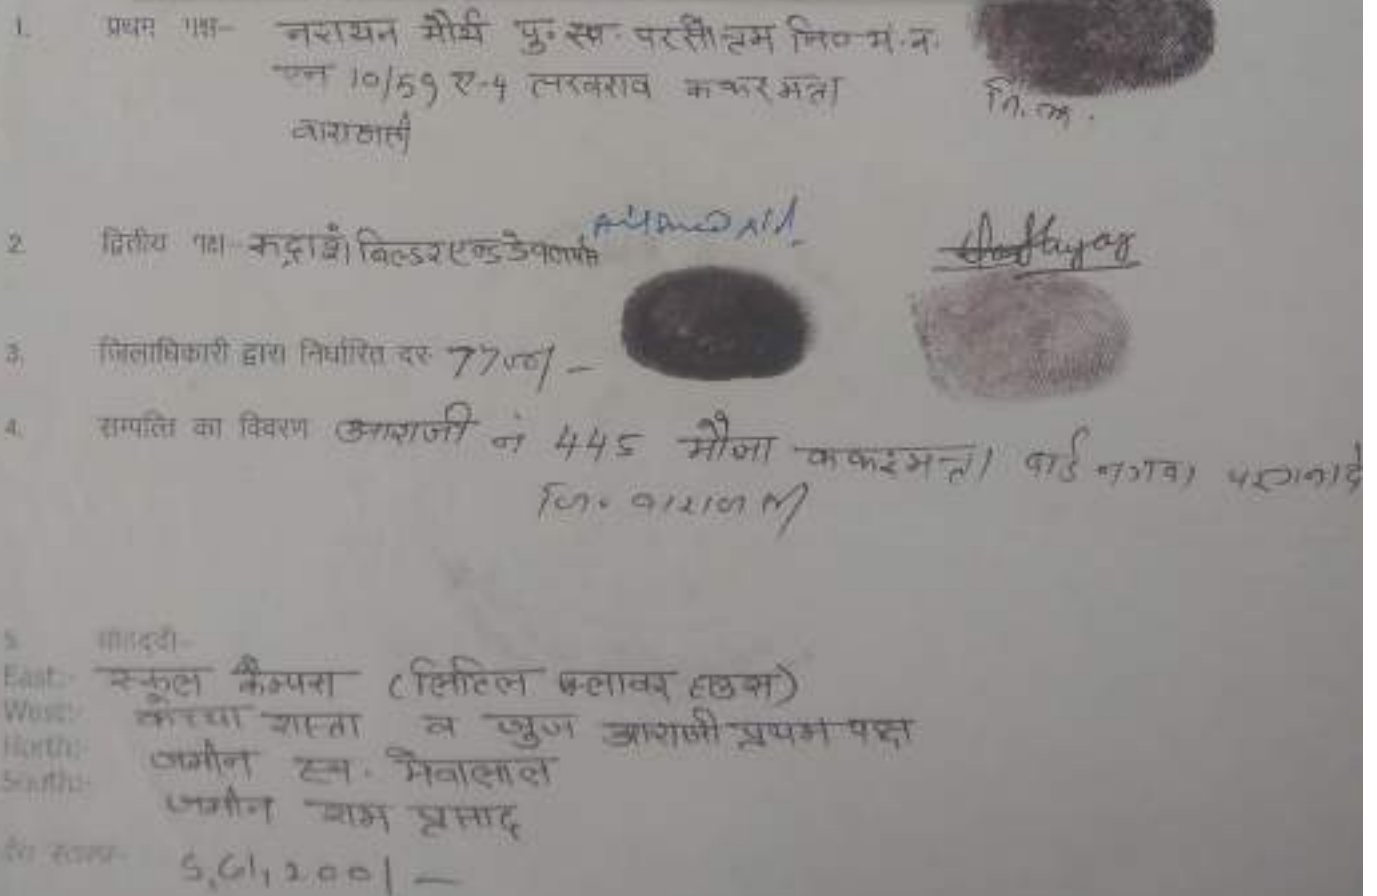 1. प्रथम पक्ष- नरायन मौर्य पु. स्व. परसोत्तम नि० म. न.
एन 10/59 ए-4 ककरमत्ता
वाराणसी
नि. अ.
2. द्वितीय पक्ष- रुद्रांशी बिल्डर एण्ड डेवलपर्स
3. जिलाधिकारी द्वारा निर्धारित दर 7700/-
4. सम्पत्ति का विवरण आराजी नं 445 मौजा ककरमत्ता वार्ड नगवा परगना दे
जि. वाराणसी
5. चौहद्दी-
East:- स्कूल कैम्पस (लिटिल फ्लावर हाउस)
West:- कच्चा रास्ता व जुज आराजी प्रथम पक्ष
North:- जमीन स्व. मेवालाल
South:- जमीन राम प्रसाद
5,61,200/-